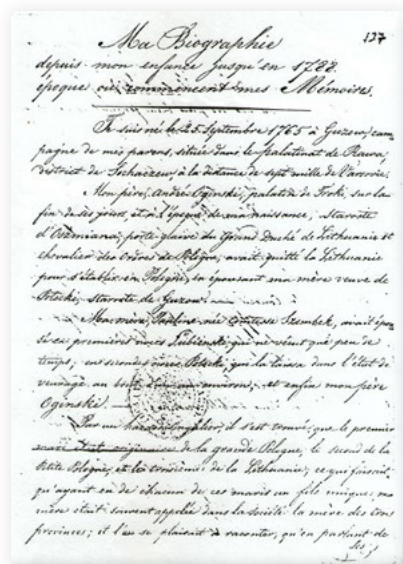 137
Ma Biographie
depuis mon enfance jusqu'en 1788
époque où commencent mes Mémoires.
Je suis né le 25 Septembre 1765 à Guzow, cam
pagne de mes parens, située dans le palatinat de Rawa,
district de Sochaczew à la distance de sept mille de Varsovie.
Mon père, André Oginski, palatin de Troki, sur la
fin de ses jours, et à l'époque de ma naissance, Staroste
d'Oszmiana, porte glaive du Grand Duché de Lithuanie et
chevalier des ordres de Pologne, avait quitté la Lithuanie
pour s'établir en Pologne, en épousant ma mère veuve de
Potocki, staroste de Guzow.
Ma mère, Pauline née comtesse Szembek, avait épou
sé en premières noces Lubienski qui ne vécut que peu de
temps, en secondes noces Potocki, qui la laissa dans l'état de
veuvage au bout d'un an environ, et enfin mon père
Oginski.
Par un hazard singulier, il s'est trouvé, que le premier
mari était originaire de la grande Pologne, le second de la
Petite Pologne, et le troisième de la Lithuanie; ce qui faisait
qu'ayant eu de chacun de ces maris un fils unique, ma
mère était souvent appelée dans la société la mère des trois
provinces; et l'on se plaisait à raconter, qu'en parlant de
ses